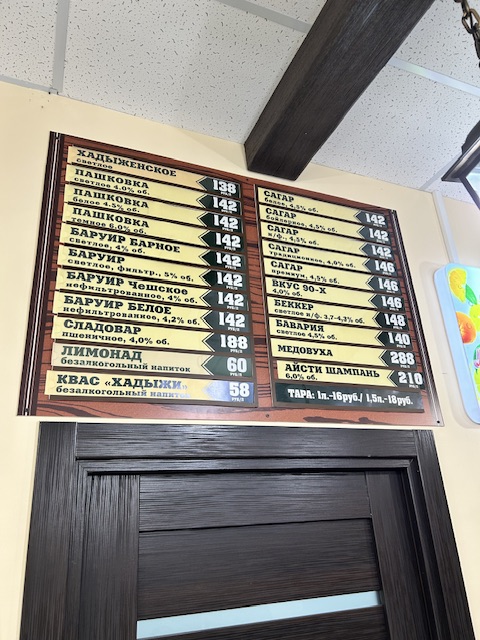 ХАДЫЖЕНСКОЕ
светлое
138
РУБ/Л
ПАШКОВКА
светлое 4.0% об.
142
РУБ/Л
ПАШКОВКА
белое 4.5% об.
142
РУБ/Л
ПАШКОВКА
темное 6.0% об.
142
РУБ/Л
БАРУИР БАРНОЕ
светлое, 4% об.
142
РУБ/Л
БАРУИР
светлое, фильтр., 5% об.
142
РУБ/Л
БАРУИР Чешское
нефильтрованное, 4% об.
142
РУБ/Л
БАРУИР БЕЛОЕ
нефильтрованное, 4,2% об.
142
РУБ/Л
СЛАДОВАР
пшеничное, 4,0% об.
188
РУБ/Л
ЛИМОНАД
безалкогольный напиток
60
РУБ/Л
КВАС «ХАДЫЖИ»
безалкогольный напиток
58
РУБ/Л
САГАР
белое, 4,5% об.
142
САГАР
бойлерное, 4,5% об.
142
САГАР
н/ф., 4,5% об.
142
САГАР
традиционное, 4,0% об.
146
САГАР
премиум, 4,5% об.
146
ВКУС 90-Х
4.0% об.
146
БЕККЕР
светлое н/ф. 3,7-4,3% об.
148
БАВАРИЯ
светлое 4,5% об.
140
МЕДОВУХА
288
РУБ/Л
АЙСТИ ШАМПАНЬ
6,0% об.
210
РУБ/Л
ТАРА: 1л.-16руб./ 1,5л.-18руб.